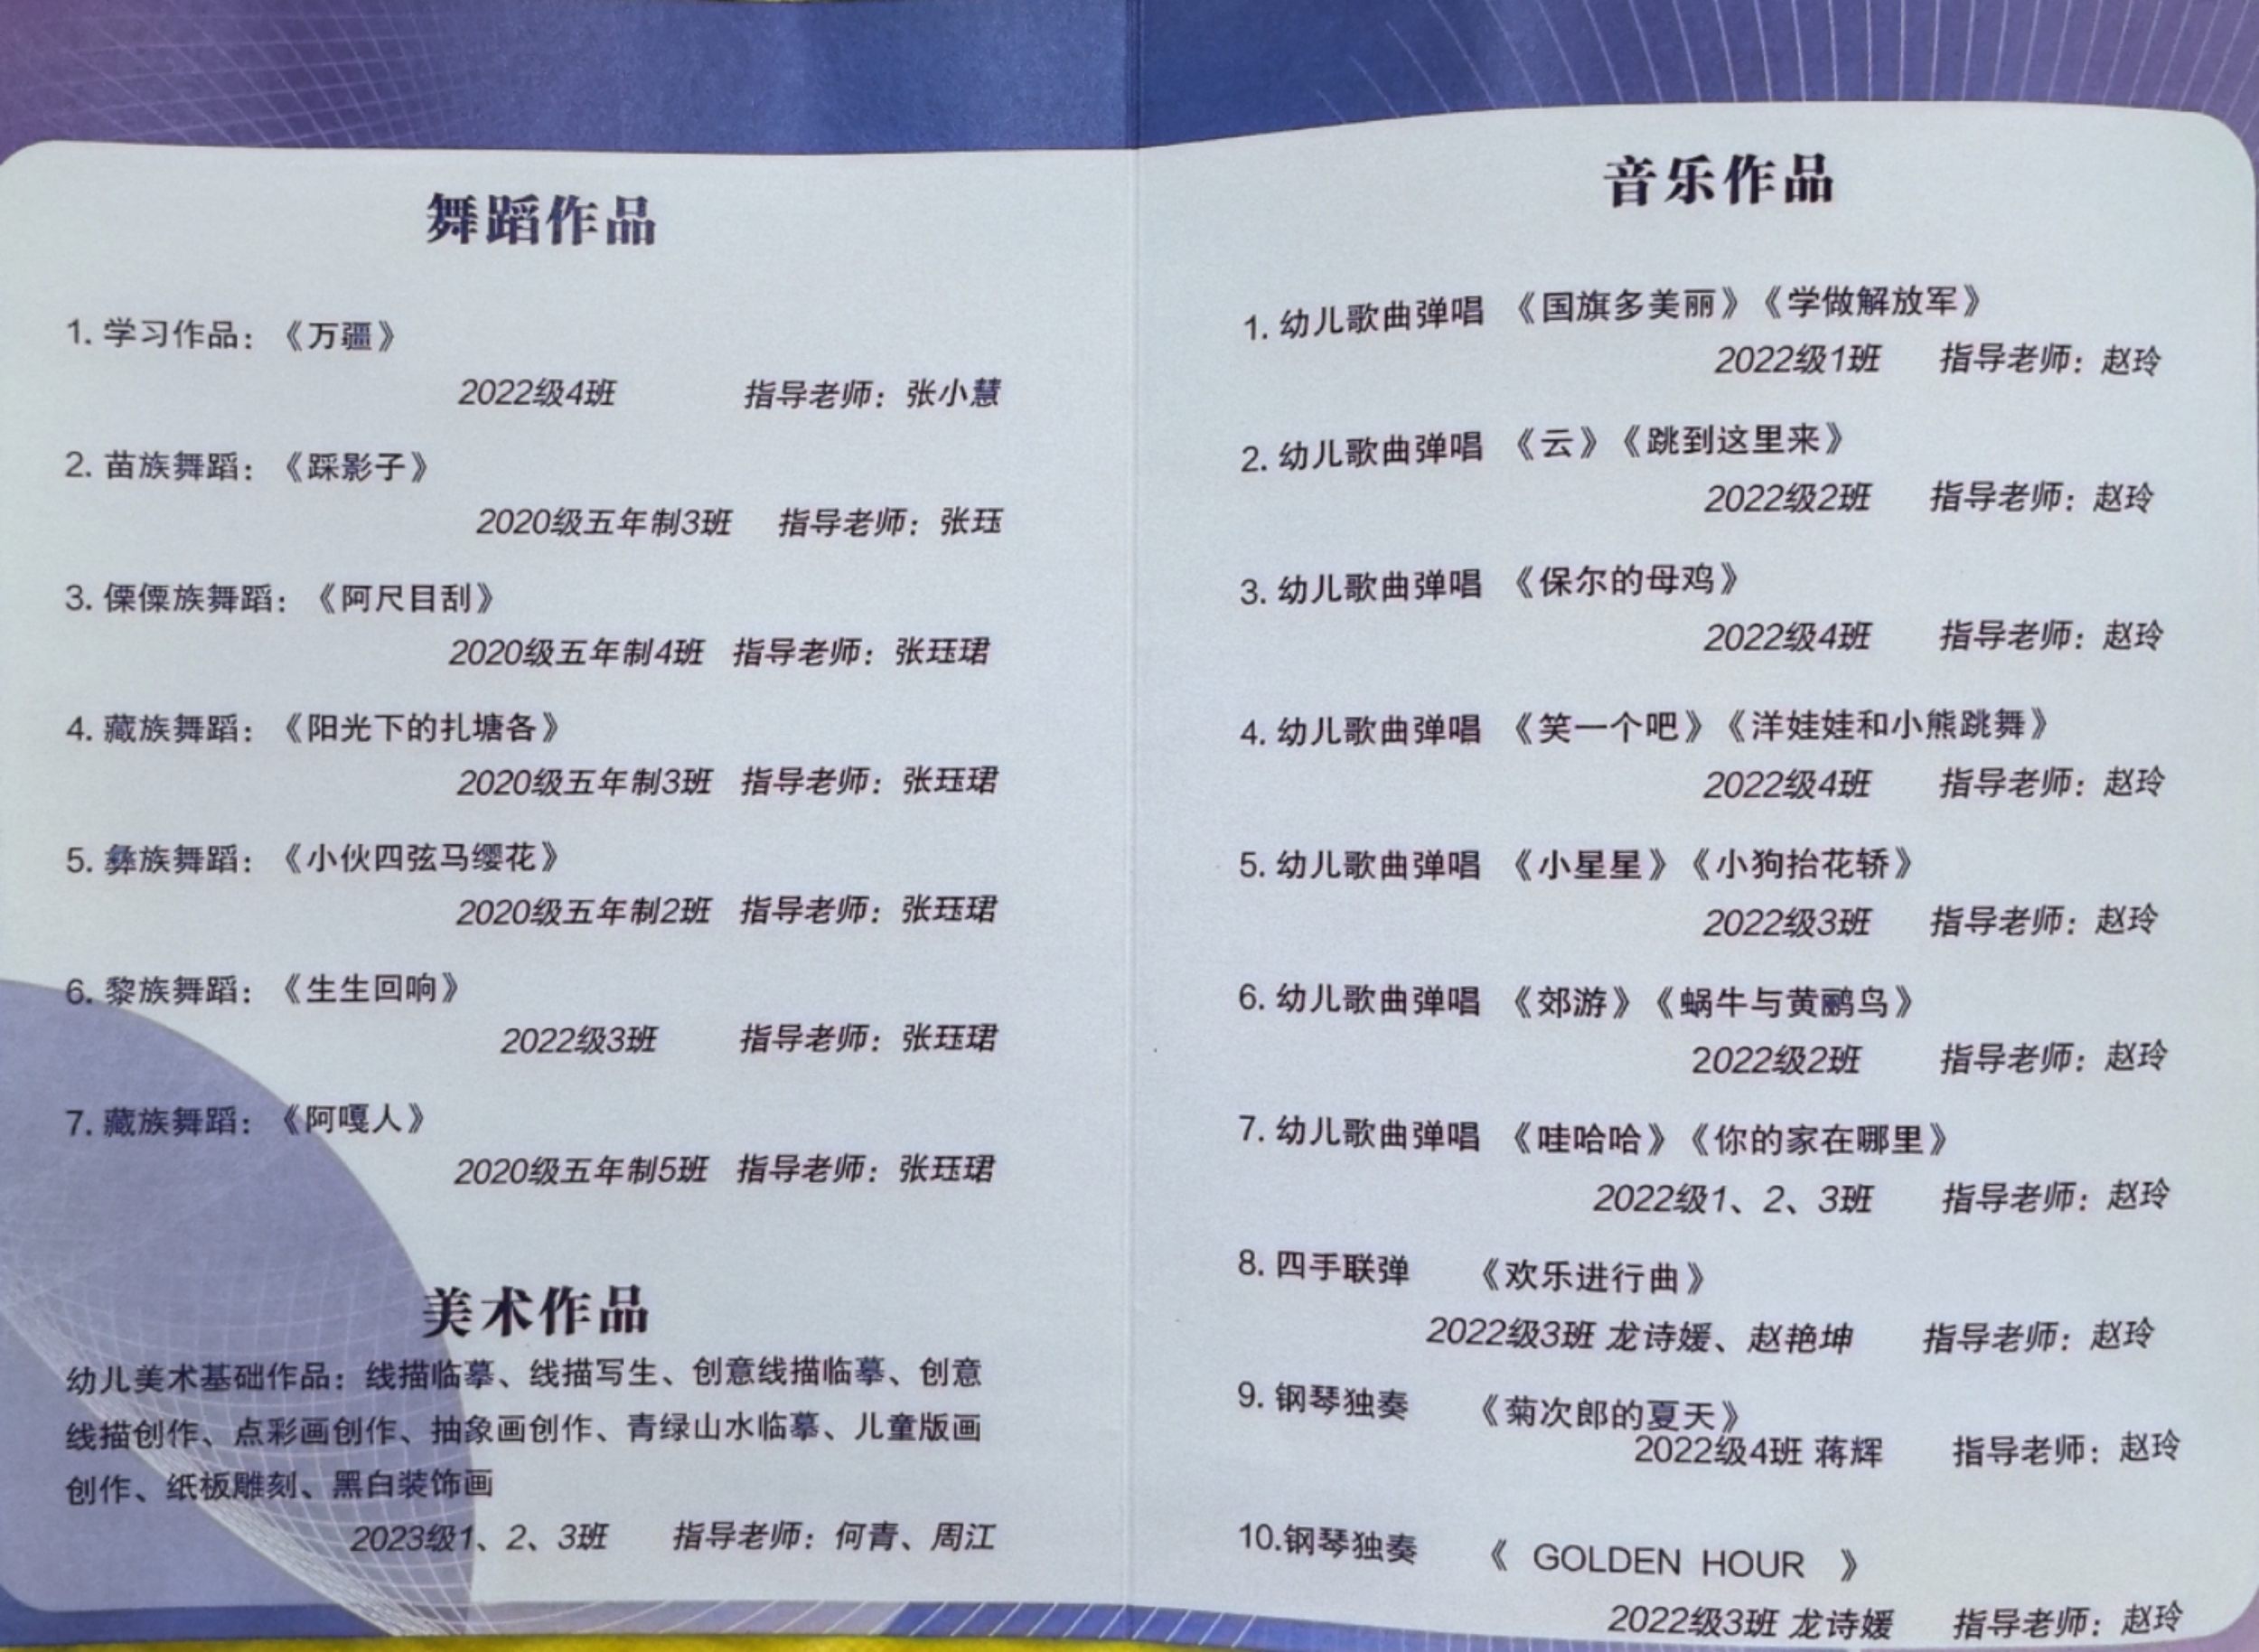 舞蹈作品
1. 学习作品：《万疆》
2022级4班 指导老师：张小慧
2. 苗族舞蹈：《踩影子》
2020级五年制3班 指导老师：张珏
3. 傈僳族舞蹈：《阿尺目刮》
2020级五年制4班 指导老师：张珏珺
4. 藏族舞蹈：《阳光下的扎塘各》
2020级五年制3班 指导老师：张珏珺
5. 彝族舞蹈：《小伙四弦马缨花》
2020级五年制2班 指导老师：张珏珺
6. 黎族舞蹈：《生生回响》
2022级3班 指导老师：张珏珺
7. 藏族舞蹈：《阿嘎人》
2020级五年制5班 指导老师：张珏珺
美术作品
幼儿美术基础作品：线描临摹、线描写生、创意线描临摹、创意
线描创作、点彩画创作、抽象画创作、青绿山水临摹、儿童版画
创作、纸板雕刻、黑白装饰画
2023级1、2、3班 指导老师：何青、周江
音乐作品
1. 幼儿歌曲弹唱 《国旗多美丽》《学做解放军》
2022级1班 指导老师：赵玲
2. 幼儿歌曲弹唱 《云》《跳到这里来》
2022级2班 指导老师：赵玲
3. 幼儿歌曲弹唱 《保尔的母鸡》
2022级4班 指导老师：赵玲
4. 幼儿歌曲弹唱 《笑一个吧》《洋娃娃和小熊跳舞》
2022级4班 指导老师：赵玲
5. 幼儿歌曲弹唱 《小星星》《小狗抬花轿》
2022级3班 指导老师：赵玲
6. 幼儿歌曲弹唱 《郊游》《蜗牛与黄鹂鸟》
2022级2班 指导老师：赵玲
7. 幼儿歌曲弹唱 《哇哈哈》《你的家在哪里》
2022级1、2、3班 指导老师：赵玲
8. 四手联弹 《欢乐进行曲》
2022级3班 龙诗媛、赵艳坤 指导老师：赵玲
9. 钢琴独奏 《菊次郎的夏天》
2022级4班 蒋辉 指导老师：赵玲
10.钢琴独奏 《 GOLDEN HOUR 》
2022级3班 龙诗媛 指导老师：赵玲